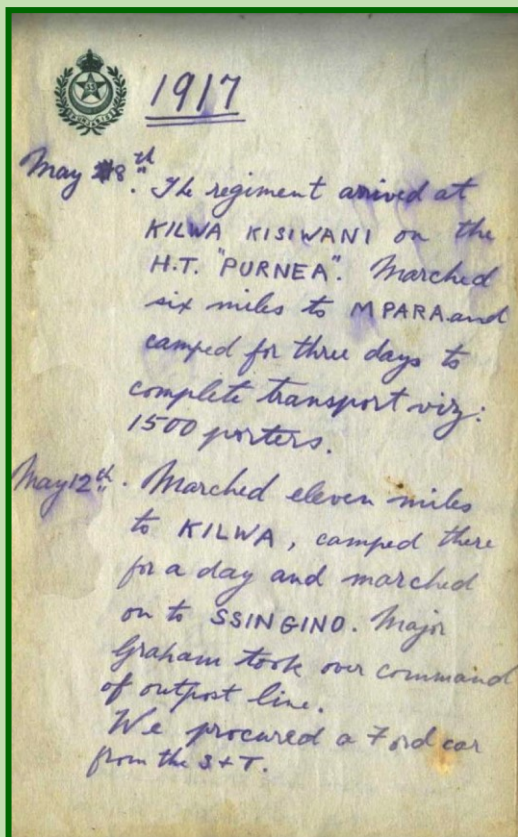 1917
May 8th. The regiment arrived at
KILWA KISIWANI on the
H.T. "PURNEA". Marched
six miles to MPARA and
camped for three days to
complete transport viz:
1500 porters.
May 12th. Marched eleven miles
to KILWA, camped there
for a day and marched
on to SSINGINO. Major
Graham took over command
of outpost line.
We procured a Ford car
from the S+T.